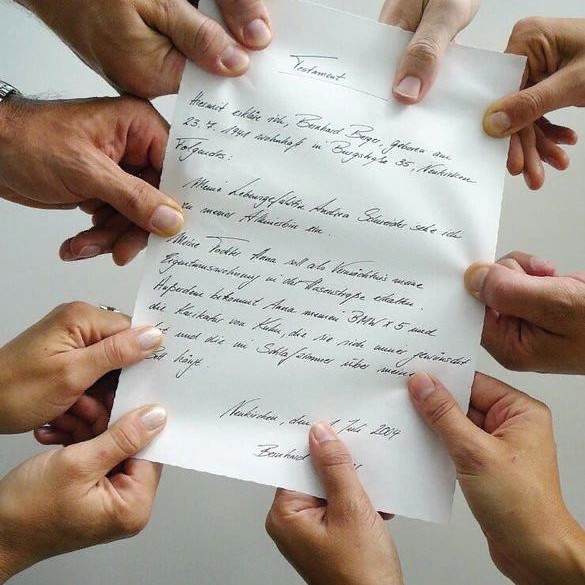 Testament
Hiermit erkläre ich, Bernhard Beyer, geboren am
23.7.1941 wohnhaft in Burgstraße 35, Neukirchen
Folgendes:
Meine Lebensgefährtin Andrea Schneider setze ich
zu meiner Alleinerbin ein.
Meine Tochter Anna soll als Vermächtnis meine
Eigentumswohnung in der Rosenstraße erhalten.
Außerdem bekommt Anna meinen BMW X5 und
die Karikatur von Kuhn, die sie sich immer gewünscht
und die im Schlafzimmer über meinem
hängt.
Neukirchen, den Juli 2004
Bernhard